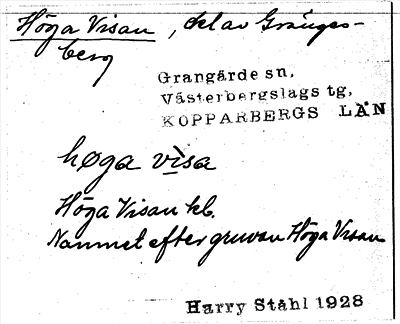 Höga Visan, del av Gränges-
berg
Grangärde sn,
Västerbergslags tg,
KOPPARBERGS LÄN
høga vìsa
Höga Visan kb.
Namnet efter gruvan Höga Visan
Harry Ståhl 1928